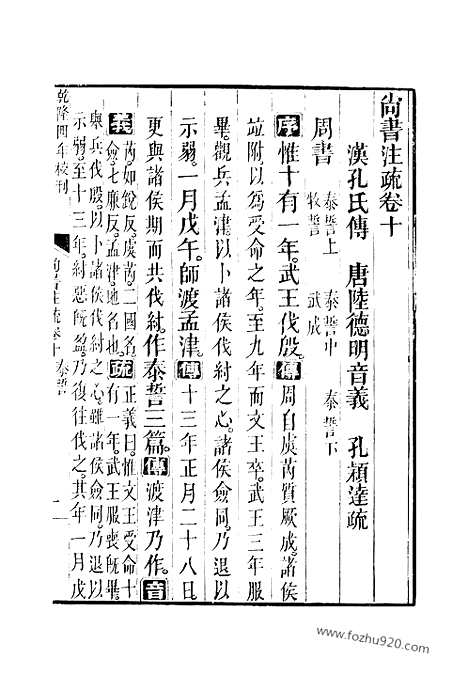 尙書注疏卷十
漢孔氏傳　唐陸德明音義　孔穎達疏
周書　泰誓上　泰誓中　泰誓下
牧誓　武成
序惟十有一年。武王伐殷。傳周自虞芮質厥成。諸侯
竝附以爲受命之年。至九年而文王卒。武王三年服
畢。觀兵孟津。以卜諸侯伐紂之心。諸侯僉同。乃退以
示弱。一月戊午。師渡孟津。傳十三年正月二十八日。
更與諸侯期而共伐紂。作泰誓三篇。傳渡津乃作。音
義芮如銳反。虞芮。二國名。
僉。七廉反。孟津。地名也。疏正義曰。惟文王受命十
有一年。武王服喪旣畢。
舉兵伐殷。以卜諸侯伐紂之心。雖諸侯僉同。乃退以
示弱。至十三年。紂惡旣盈。乃復往伐之。其年一月戊
乾隆四年校刊
尙書注疏卷十　泰誓
一
www.fozhu920.com